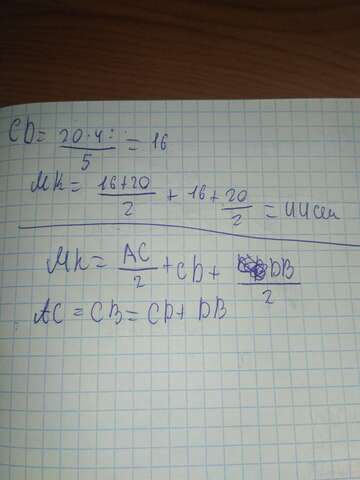 CD = 20·4: / 5 = 16
MK = 16+20 / 2 + 16 + 20 / 2 = 44 см
MK = AC / 2 + CD + DB / 2
AC = CB = CD + DB